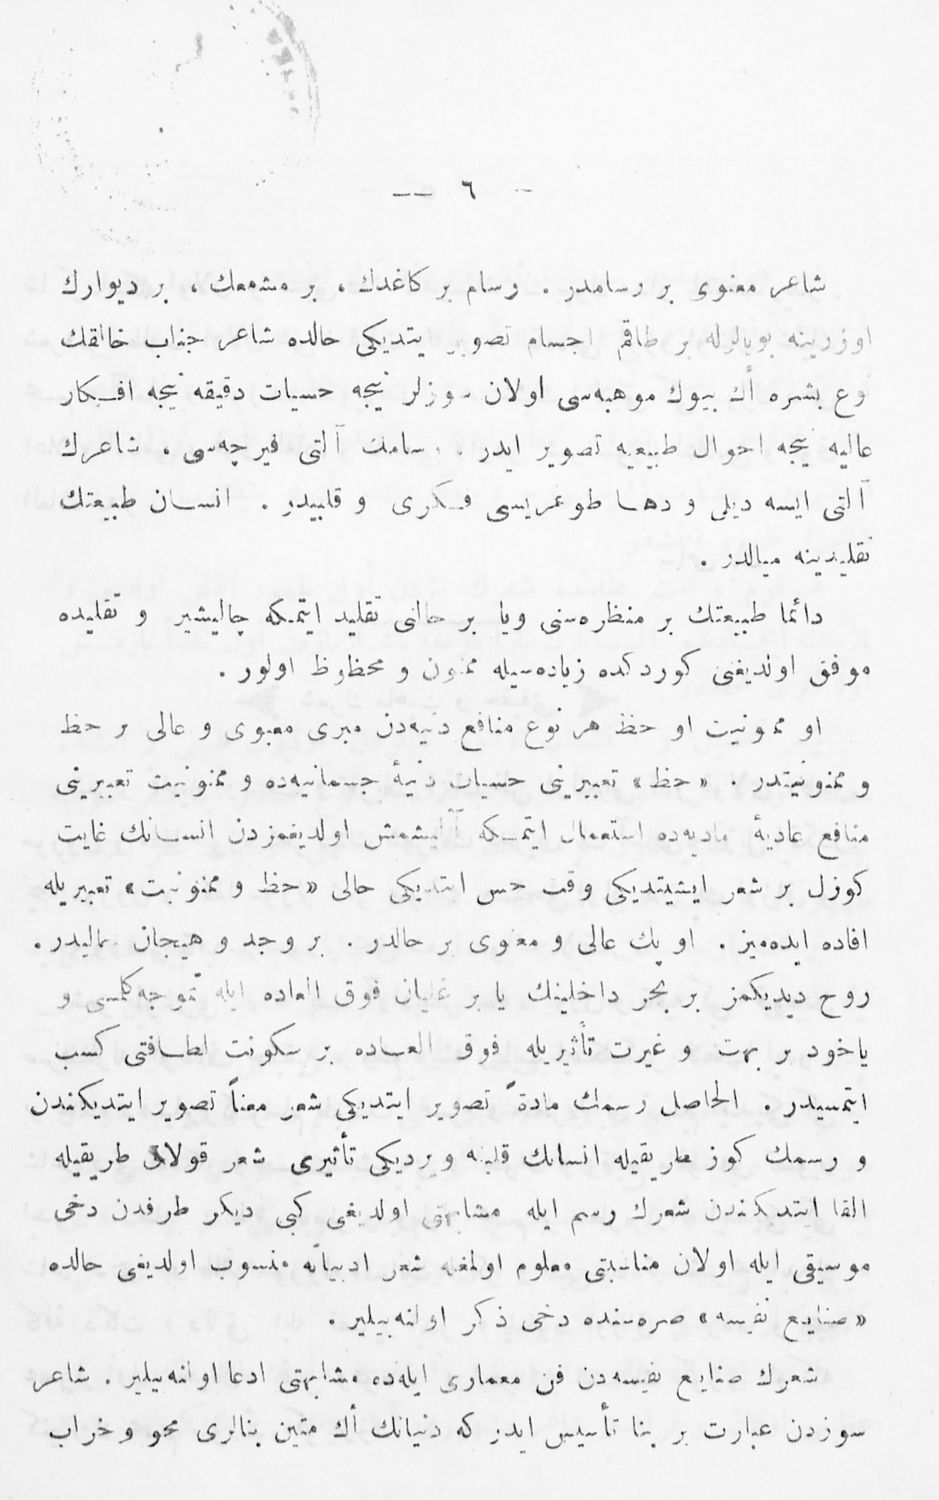 — ٦ —
شاعر معنوى بر رسامدر . رسام بر كاغدك ، بر مشمعك ، بر ديوارك
اوزرينه بويالرله بر طاقم اجسام تصوير ايتديكى حالده شاعر جناب خالقك
نوع بشره أك بيوك موهبه‌سى اولان سوزلر نيجه حسيات دقيقه نيجه افكار
عاليه نيجه احوال طبيعيه تصوير ايدر . رسامك آلتى فيرچه‌سى ، شاعرك
آلتى ايسه ديلى و دها طوغريسى فكرى و قلبيدر . انسان طبيعتك
تقليدينه ميالدر .
دائما طبيعتك بر منظره‌سنى ويا بر حالنى تقليد ايتمكه چاليشير و تقليده
موفق اولديغنى كوردكده زياده‌سيله ممنون و محظوظ اولور .
او ممنونيت او حظ هر نوع منافع دنيه‌دن مبرى معنوى و عالى بر حظ
و ممنونيتدر . «حظ» تعبيرينى حسيات دنيۀ جسمانيه‌ده و ممنونيت تعبيرينى
منافع عاديۀ ماديه‌ده استعمال ايتمكه آليشمش اولديغمزدن انسانك غايت
كوزل بر شعر ايشيتديكى وقت حس ايتديكى حالى «حظ و ممنونيت» تعبيريله
افاده ايده‌ميز . او پك عالى و معنوى بر حالدر . بر وجد و هيجان عاليدر .
روح ديديكمز بر بحر داخلينك يا بر غليان فوق العاده ايله تموجه كلمسى و
ياخود بر بهت و غيرت تأثيريله فوق العاده بر سكونت لطافتى كسب
ايتمسيدر . الحاصل رسمك مادةً تصوير ايتديكى شعر معناً تصوير ايتديكندن
و رسمك كوز طريقيله انسانك قلبنه ويرديكى تأثيرى شعر قولاق طريقيله
القا ايتديكندن شعرك رسم ايله مشابهتى اولديغى كبى ديكر طرفدن دخى
موسيقى ايله اولان مناسبتى معلوم اولمغله شعر ادبياته منسوب اولديغى حالده
«صنايع نفيسه» صره‌سنده دخى ذكر اولنه‌بيلير .
شعرك صنايع نفيسه‌دن فن معمارى ايله‌ده مشابهتى ادعا اولنه‌بيلير . شاعر
سوزدن عبارت بر بنا تأسيس ايدر كه دنيانك أك متين بنالرى محو و خراب